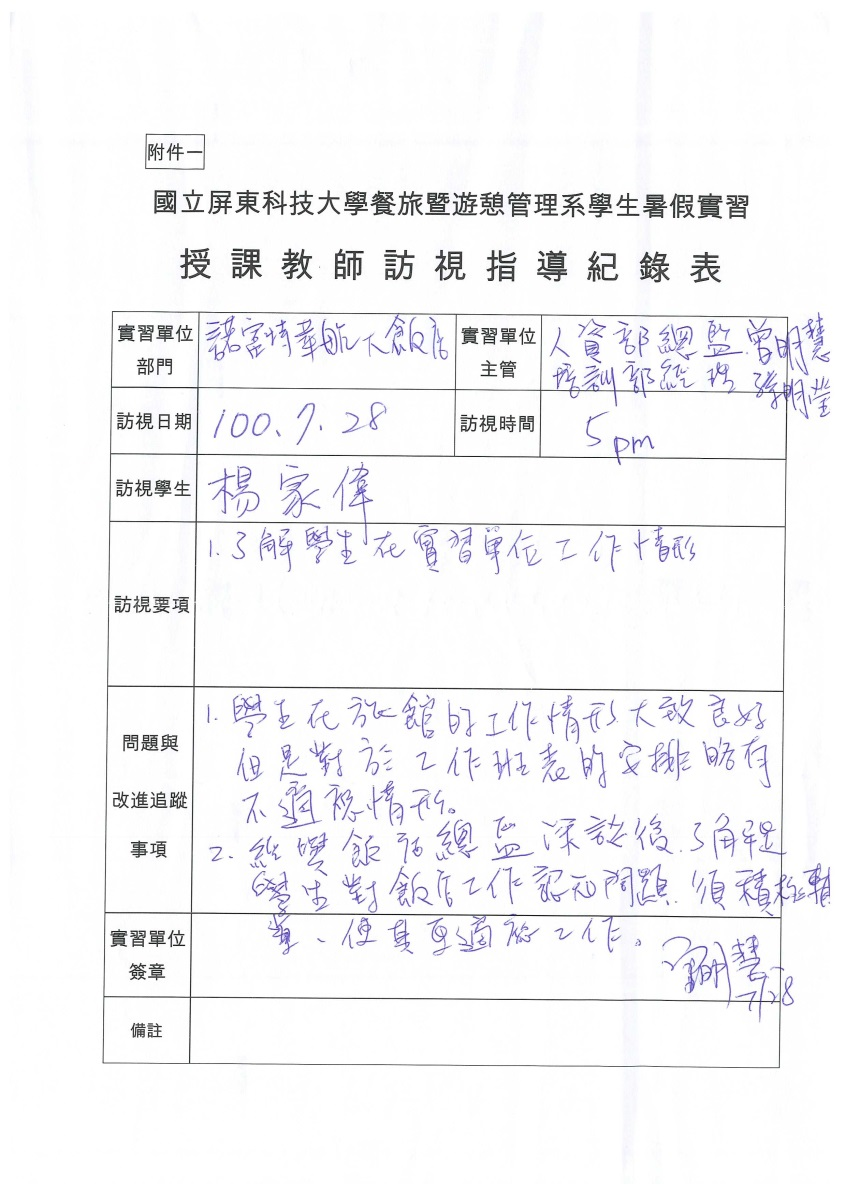 附件一
國立屏東科技大學餐旅暨遊憩管理系學生暑假實習
授課教師訪視指導紀錄表
實習單位
部門
諾富特華航大飯店
實習單位
主管
人資部總監 曾明慧
培訓部經理 明瑩
訪視日期
100.7.28
訪視時間
5pm
訪視學生
楊家偉
訪視要項
1.了解學生在實習單位工作情形
問題與
改進追蹤
事項
1.學生在旅館的工作情形大致良好
但是對於工作班表的安排略有
不適應情形。
2.經與飯店總監深談後,了解是
學生對飯店工作認知問題,須積極輔
導、使其更適應工作。
實習單位
簽章
曾明慧
7/28
備註